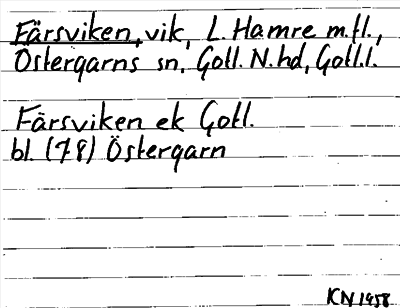 Färsviken, vik, L. Hamre m.fl.,
Östergarns sn, Gotl. N. hd, Gotl. l.
Färsviken ek Gotl.
bl. (78) Östergarn
KN 1958